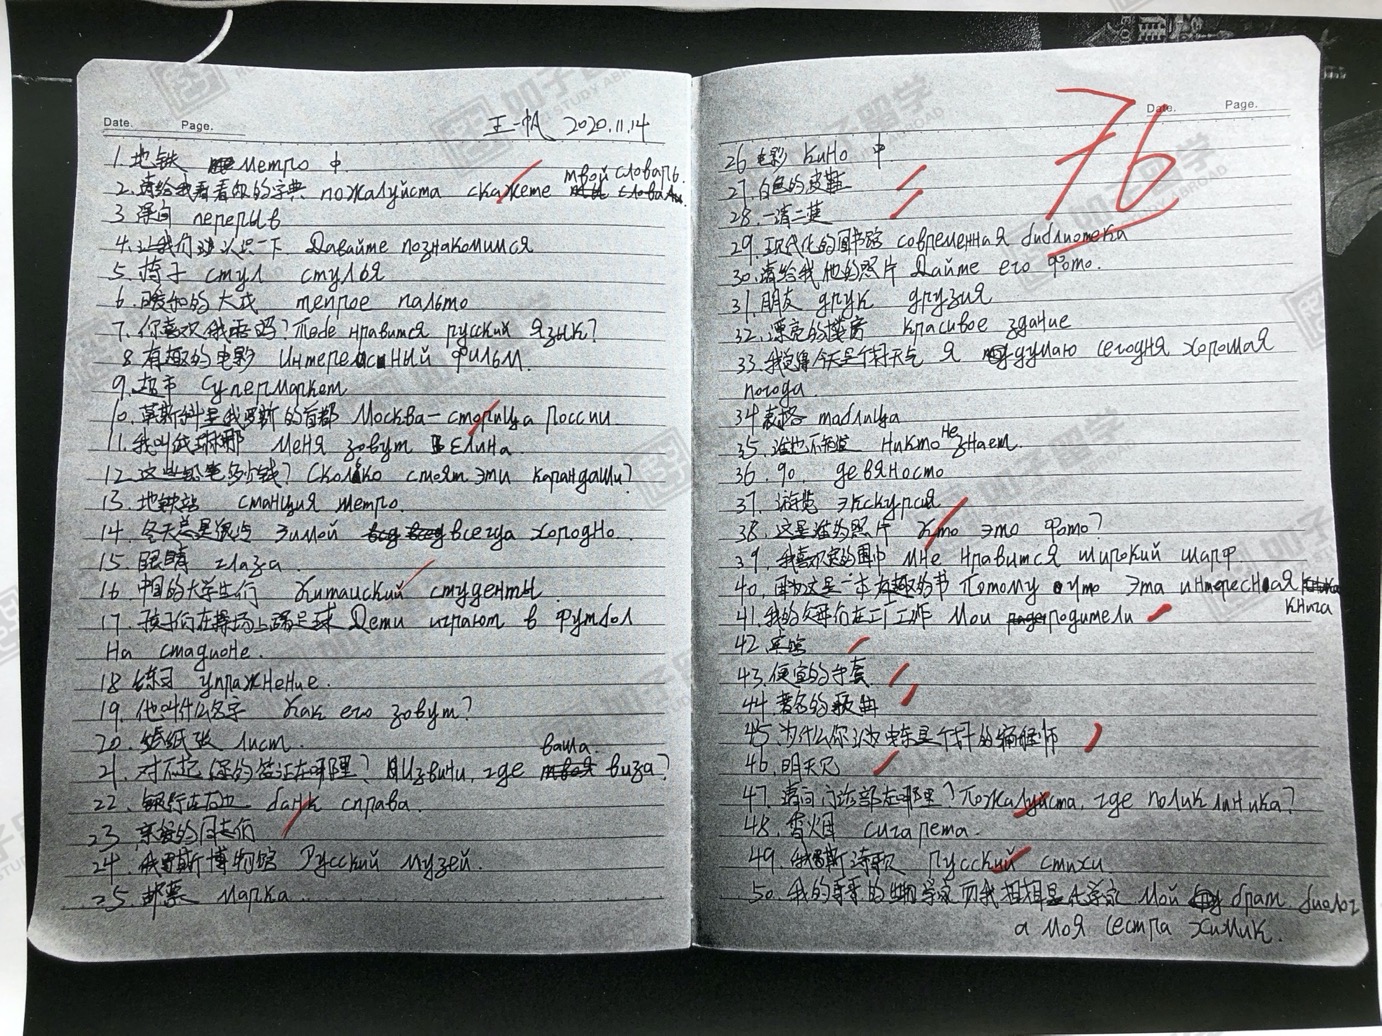 Date. Page.
王一帆 2020.11.14
1. 地铁 метро 中
2. 请给我看看你的字典 пожалуйста скажете твой словарь.
3 课间 перерыв
4. 让我们认识一下 Давайте познакомимся
5. 椅子 стул стулья
6. 暖和的大衣 теплое пальто
7. 你喜欢俄语吗? Тебе нравится русский язык?
8 有趣的电影 Интересный фильм.
9. 超市 Супермаркет
10. 莫斯科是俄罗斯的首都 Москва — столица России.
11. 我叫 меня зовут Елина.
12. 这些铅笔多少钱? Сколько стоят эти карандаши?
13. 地铁站 станция метро.
14. 冬天总是很冷 Зимой всегда холодно.
15. 眼睛 глаза.
16. 中国的大学生们 Китайский студенты.
17. 孩子们在操场上踢足球 Дети играют в футбол
на стадионе.
18 练习 упражнение.
19. 他叫什么名字 Как его зовут?
20. 纸张 лист.
21. 对不起 您的签证在哪里? Извини, где ваша виза?
22. 银行在右边 банк справа.
23. 亲爱的同志们
24. 俄罗斯博物馆 Русский музей.
25. 邮票 марка.
Date. Page.
76
26 电影 Кино 中
27. 白色的皮鞋
28. 一请二英
29. 现代化的图书馆 современная библиотека
30. 请给我他的照片 Дайте его фото.
31. 朋友 друк друзия
32. 漂亮的楼房 красивое здание
33. 我觉得今天是个好天气 я думаю сегодня хорошая
погода.
34 表格 таблица
35. 谁也不知道 никто не знает.
36. 90 девяносто
37. 游览 экскурсия
38. 这是谁的照片 Кто это фото?
39. 我喜欢宽的围巾 мне нравится широкий шарф
40. 因为这是一本有趣的书 Потому что эта интересная
книга
41. 我的父母们在工厂工作 Мои родители
42. 宾馆
43. 便宜的手套
44 著名的歌曲
45. 为什么你认为她是个好的
46. 明天见
47. 请问门诊部在哪里? Пожалуйста, где поликлиника?
48. 香烟 сигарета.
49. 俄罗斯诗歌 Русский стихи
50. 我的哥哥是生物学家而我姐姐是化学家 мой брат биолог
а моя сестра химик.